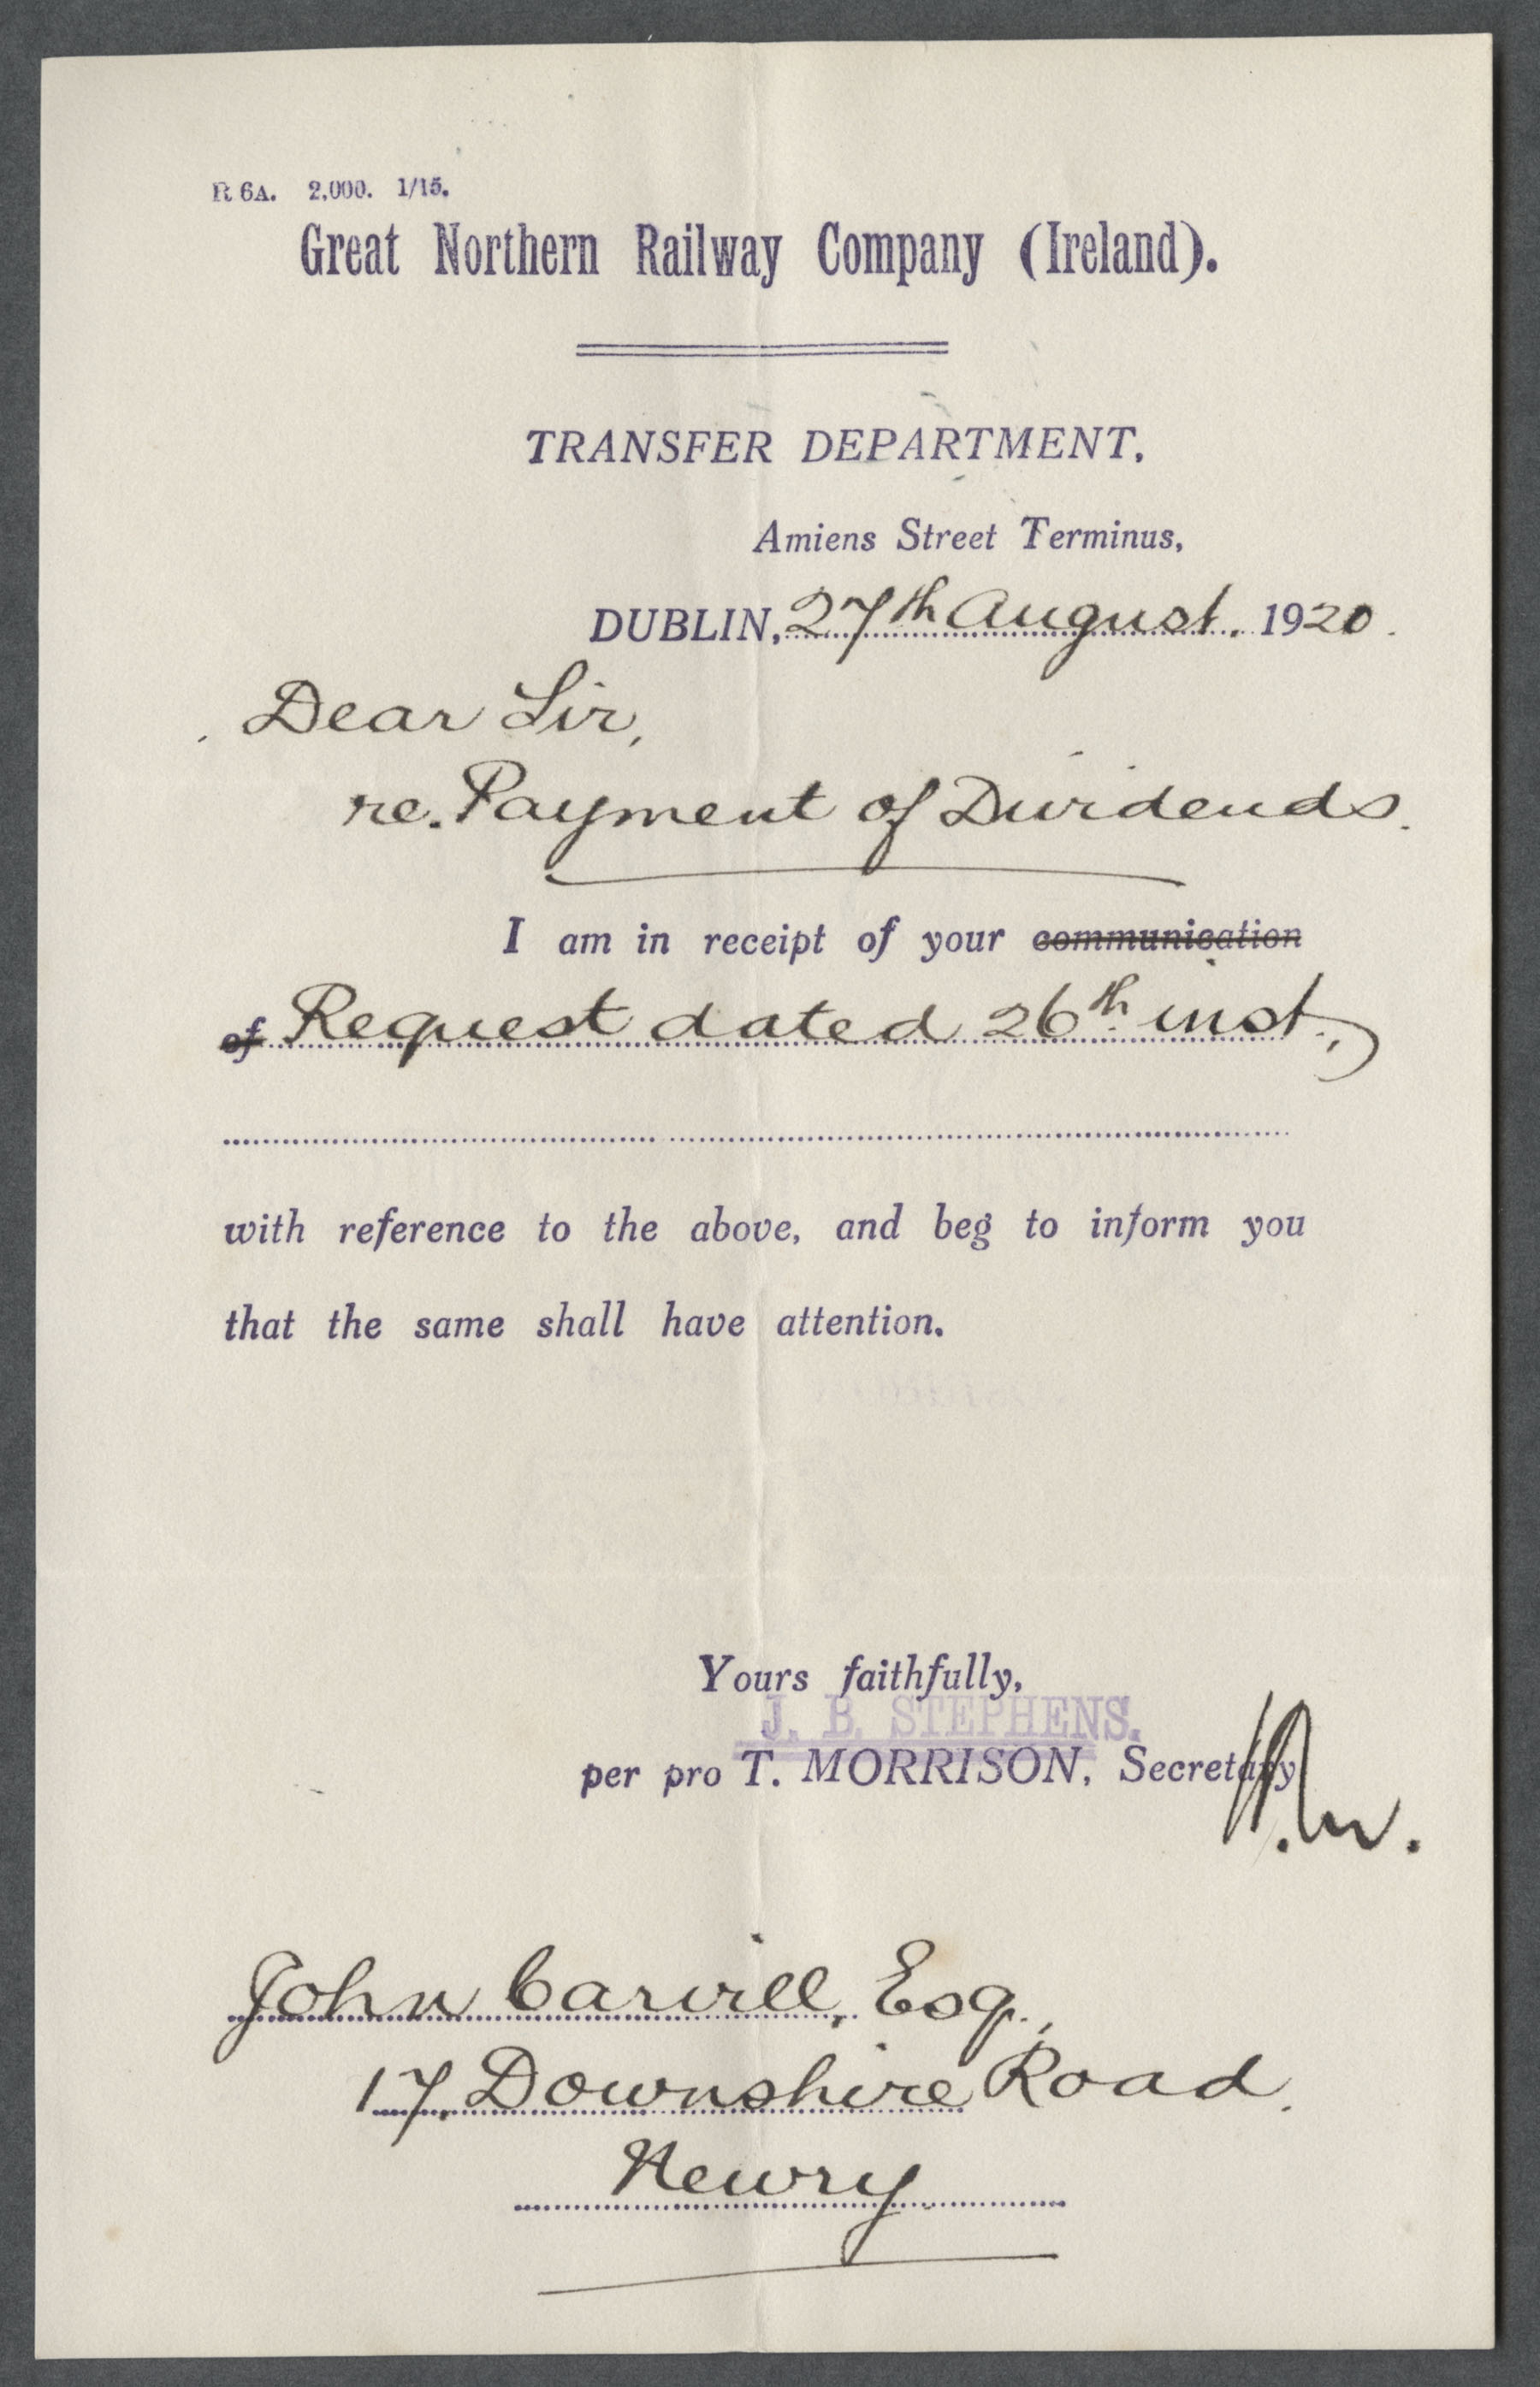 R 6A. 2,000. 1/15.
Great Northern Railway Company (Ireland).
TRANSFER DEPARTMENT,
Amiens Street Terminus,
DUBLIN, 27th August. 1920.
Dear Sir,
re. Payment of Dividends.
I am in receipt of your communication
of Request dated 26th inst.,
with reference to the above, and beg to inform you
that the same shall have attention.
Yours faithfully,
J. B. STEPHENS.
per pro T. MORRISON, Secretary
John Carvill, Esq.,
17, Downshire Road.
Newry